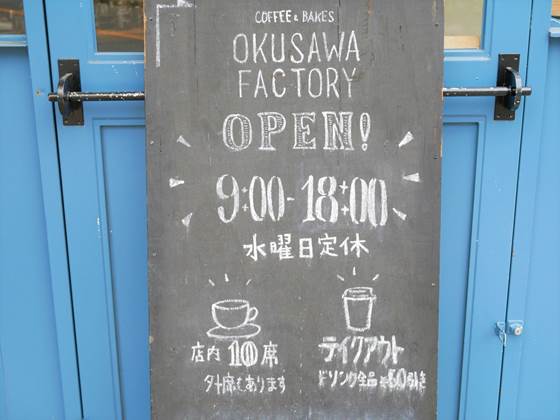 COFFEE & BAKES
OKUSAWA
FACTORY
OPEN!
9:00-18:00
水曜日定休
店内10席
外席もあります
テイクアウト
ドリンク全品¥50引き